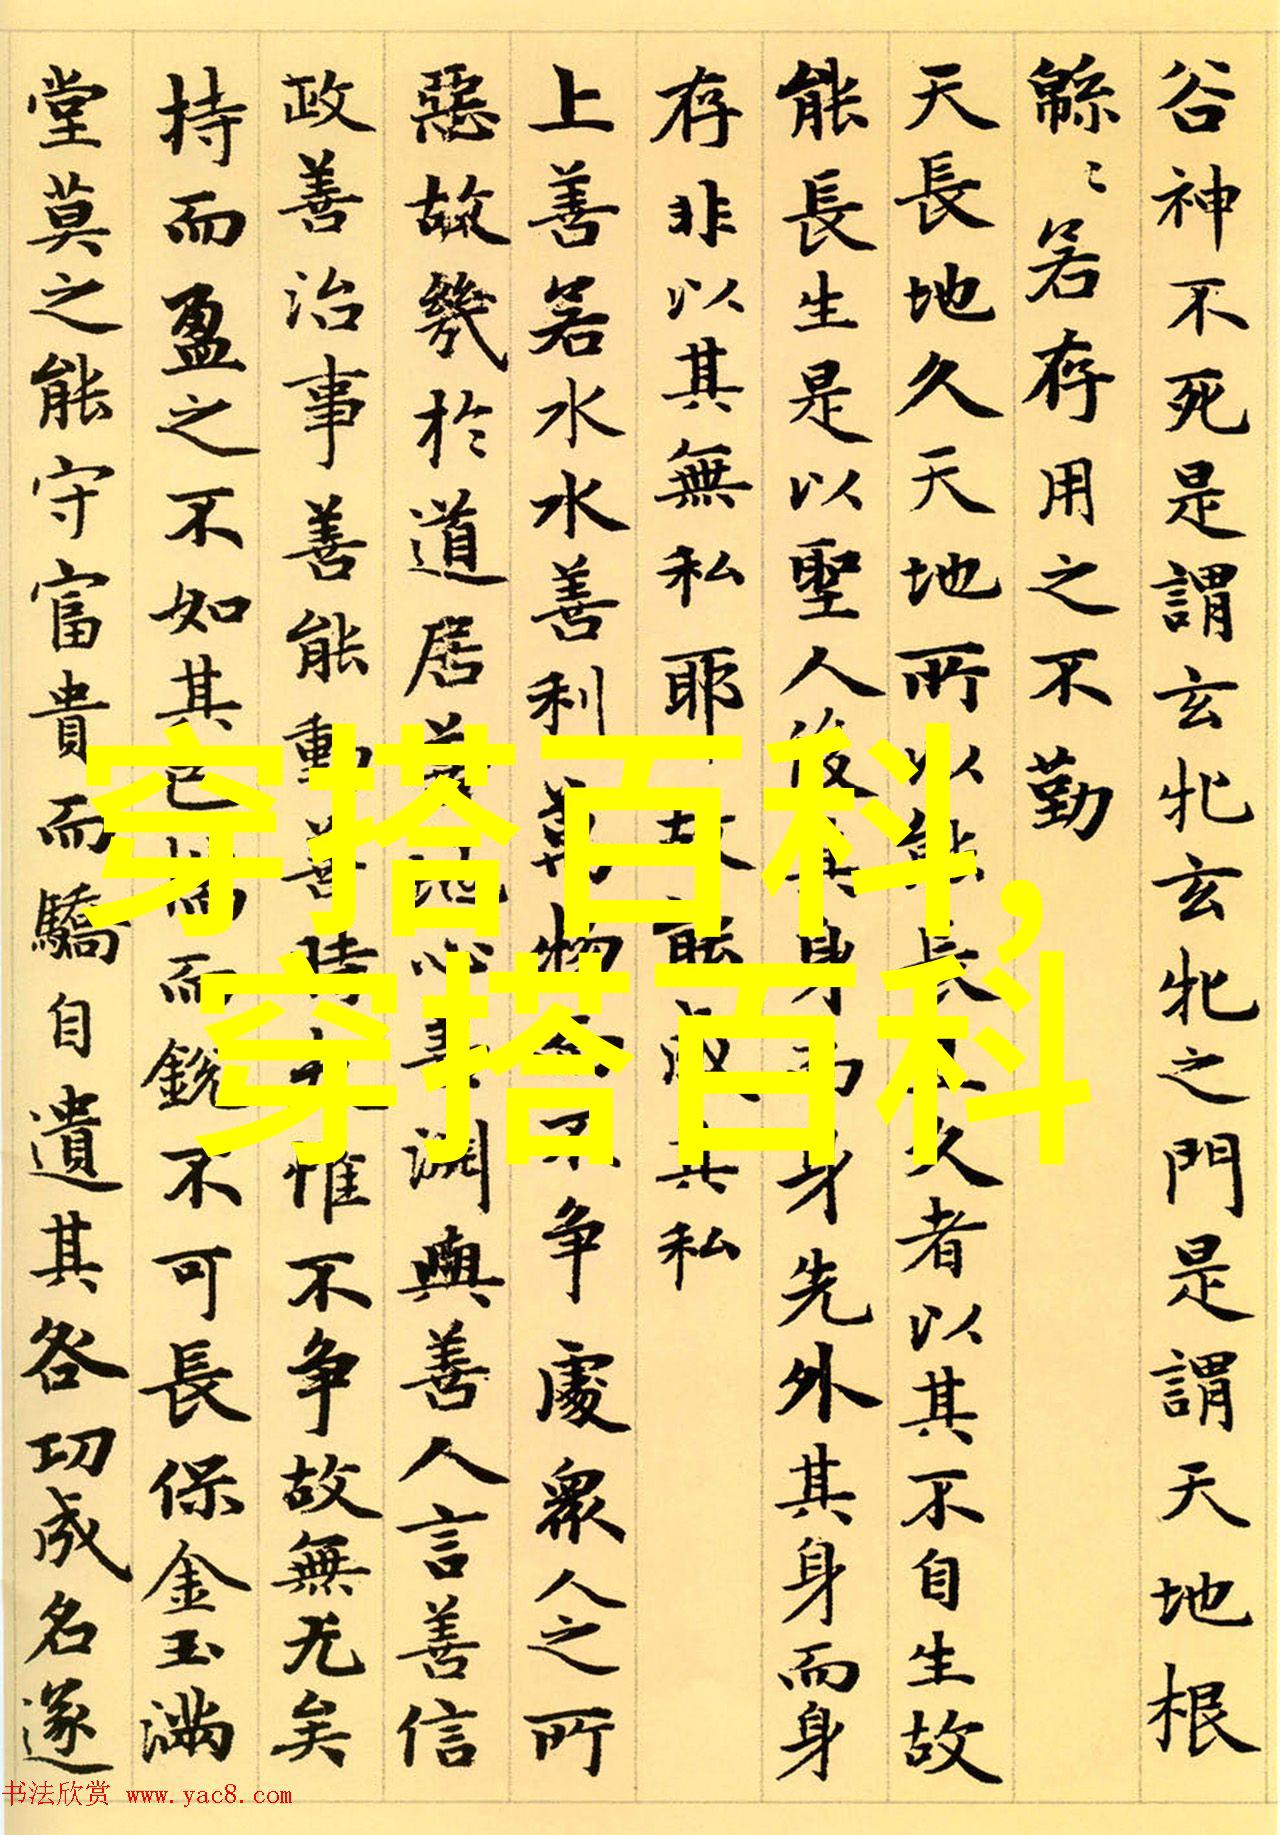 谷神不死是謂玄牝玄牝之門是謂天地根
緜〻若存用之不勤
天長地久天地所以能長久者以其不自生故
能長生是以聖人後其身而身先外其身而身
存非以其無私耶故能成其私
上善若水水善利萬物不爭處衆人之所
惡故幾於道居善地心善淵與善人言善信
政善治事善能動善時惟不爭故無尤矣
持而盈之不如其已揣而銳不可長保金玉滿
堂莫之能守富貴而驕自遺其咎功成名遂
穿搭百科,
穿搭百科
书法欣赏 www.yac8.com